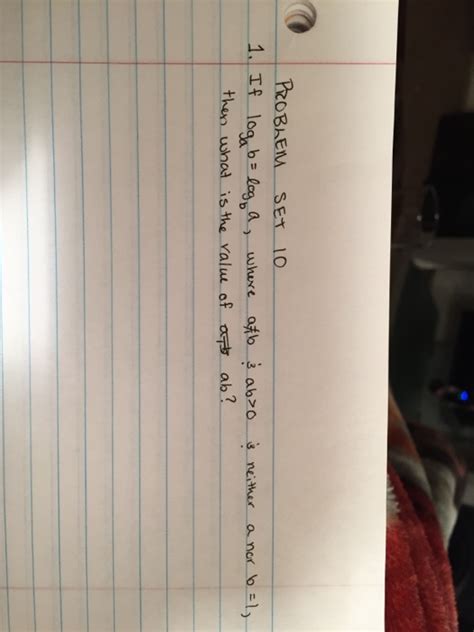 PROBLEM SET 10
1. If logₐb = log_b a, where a≠b & ab>0 & neither a nor b=1,
then what is the value of ab?